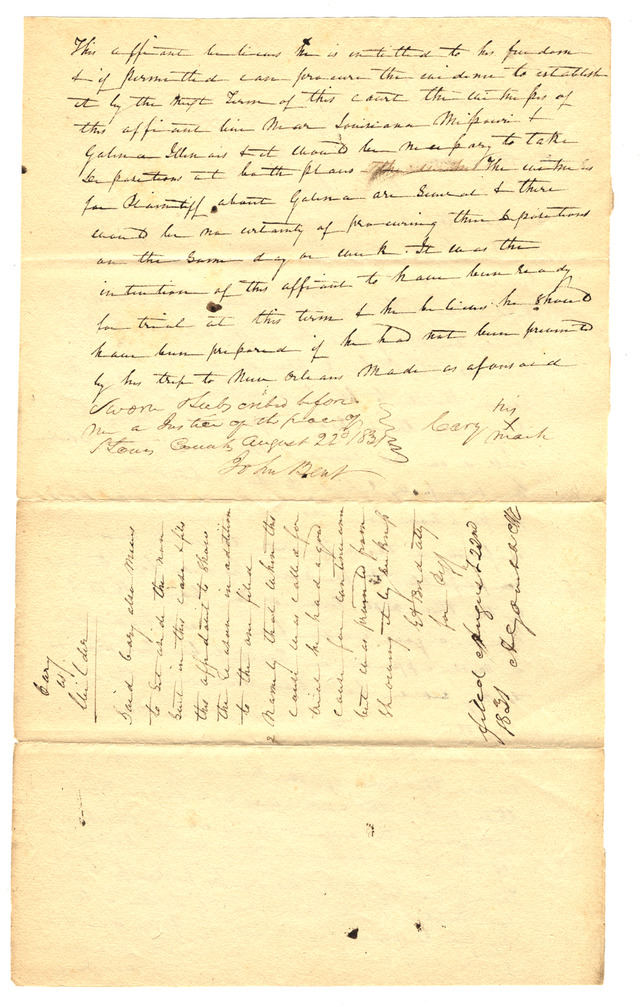 This affiant believes he is entitled to his freedom
& if permitted can procure the evidence to establish
it by the next Term of this court the witnesses of
this affiant live near Louisiana Missouri &
Galena Illinois & it would be necessary to take
Depositions at both places The witnesses
for Plaintiff about Galena are Several & there
would be no certainty of procuring their Depositions
on the Same day or week. It was the
intention of this affiant to have been ready
for trial at this term & he believes he should
have been prepared if he had not been prevented
by his trip to New Orleans made as aforesaid
Sworn & Subscribed before
me a Justice of the peace of
St Louis County August 22d 1831
John Bent
his
Cary X
mark
Cary
vs
Wilder
Said Cary also moves
to Set aside the non
Suit in this case & files
this affidavit to Show
the reason in addition
to the one filed
Namely that when this
cause was called for
trial he had a good
cause for continuance
but was prevented from
Showing it by
for Plff
filed August 22nd
1831